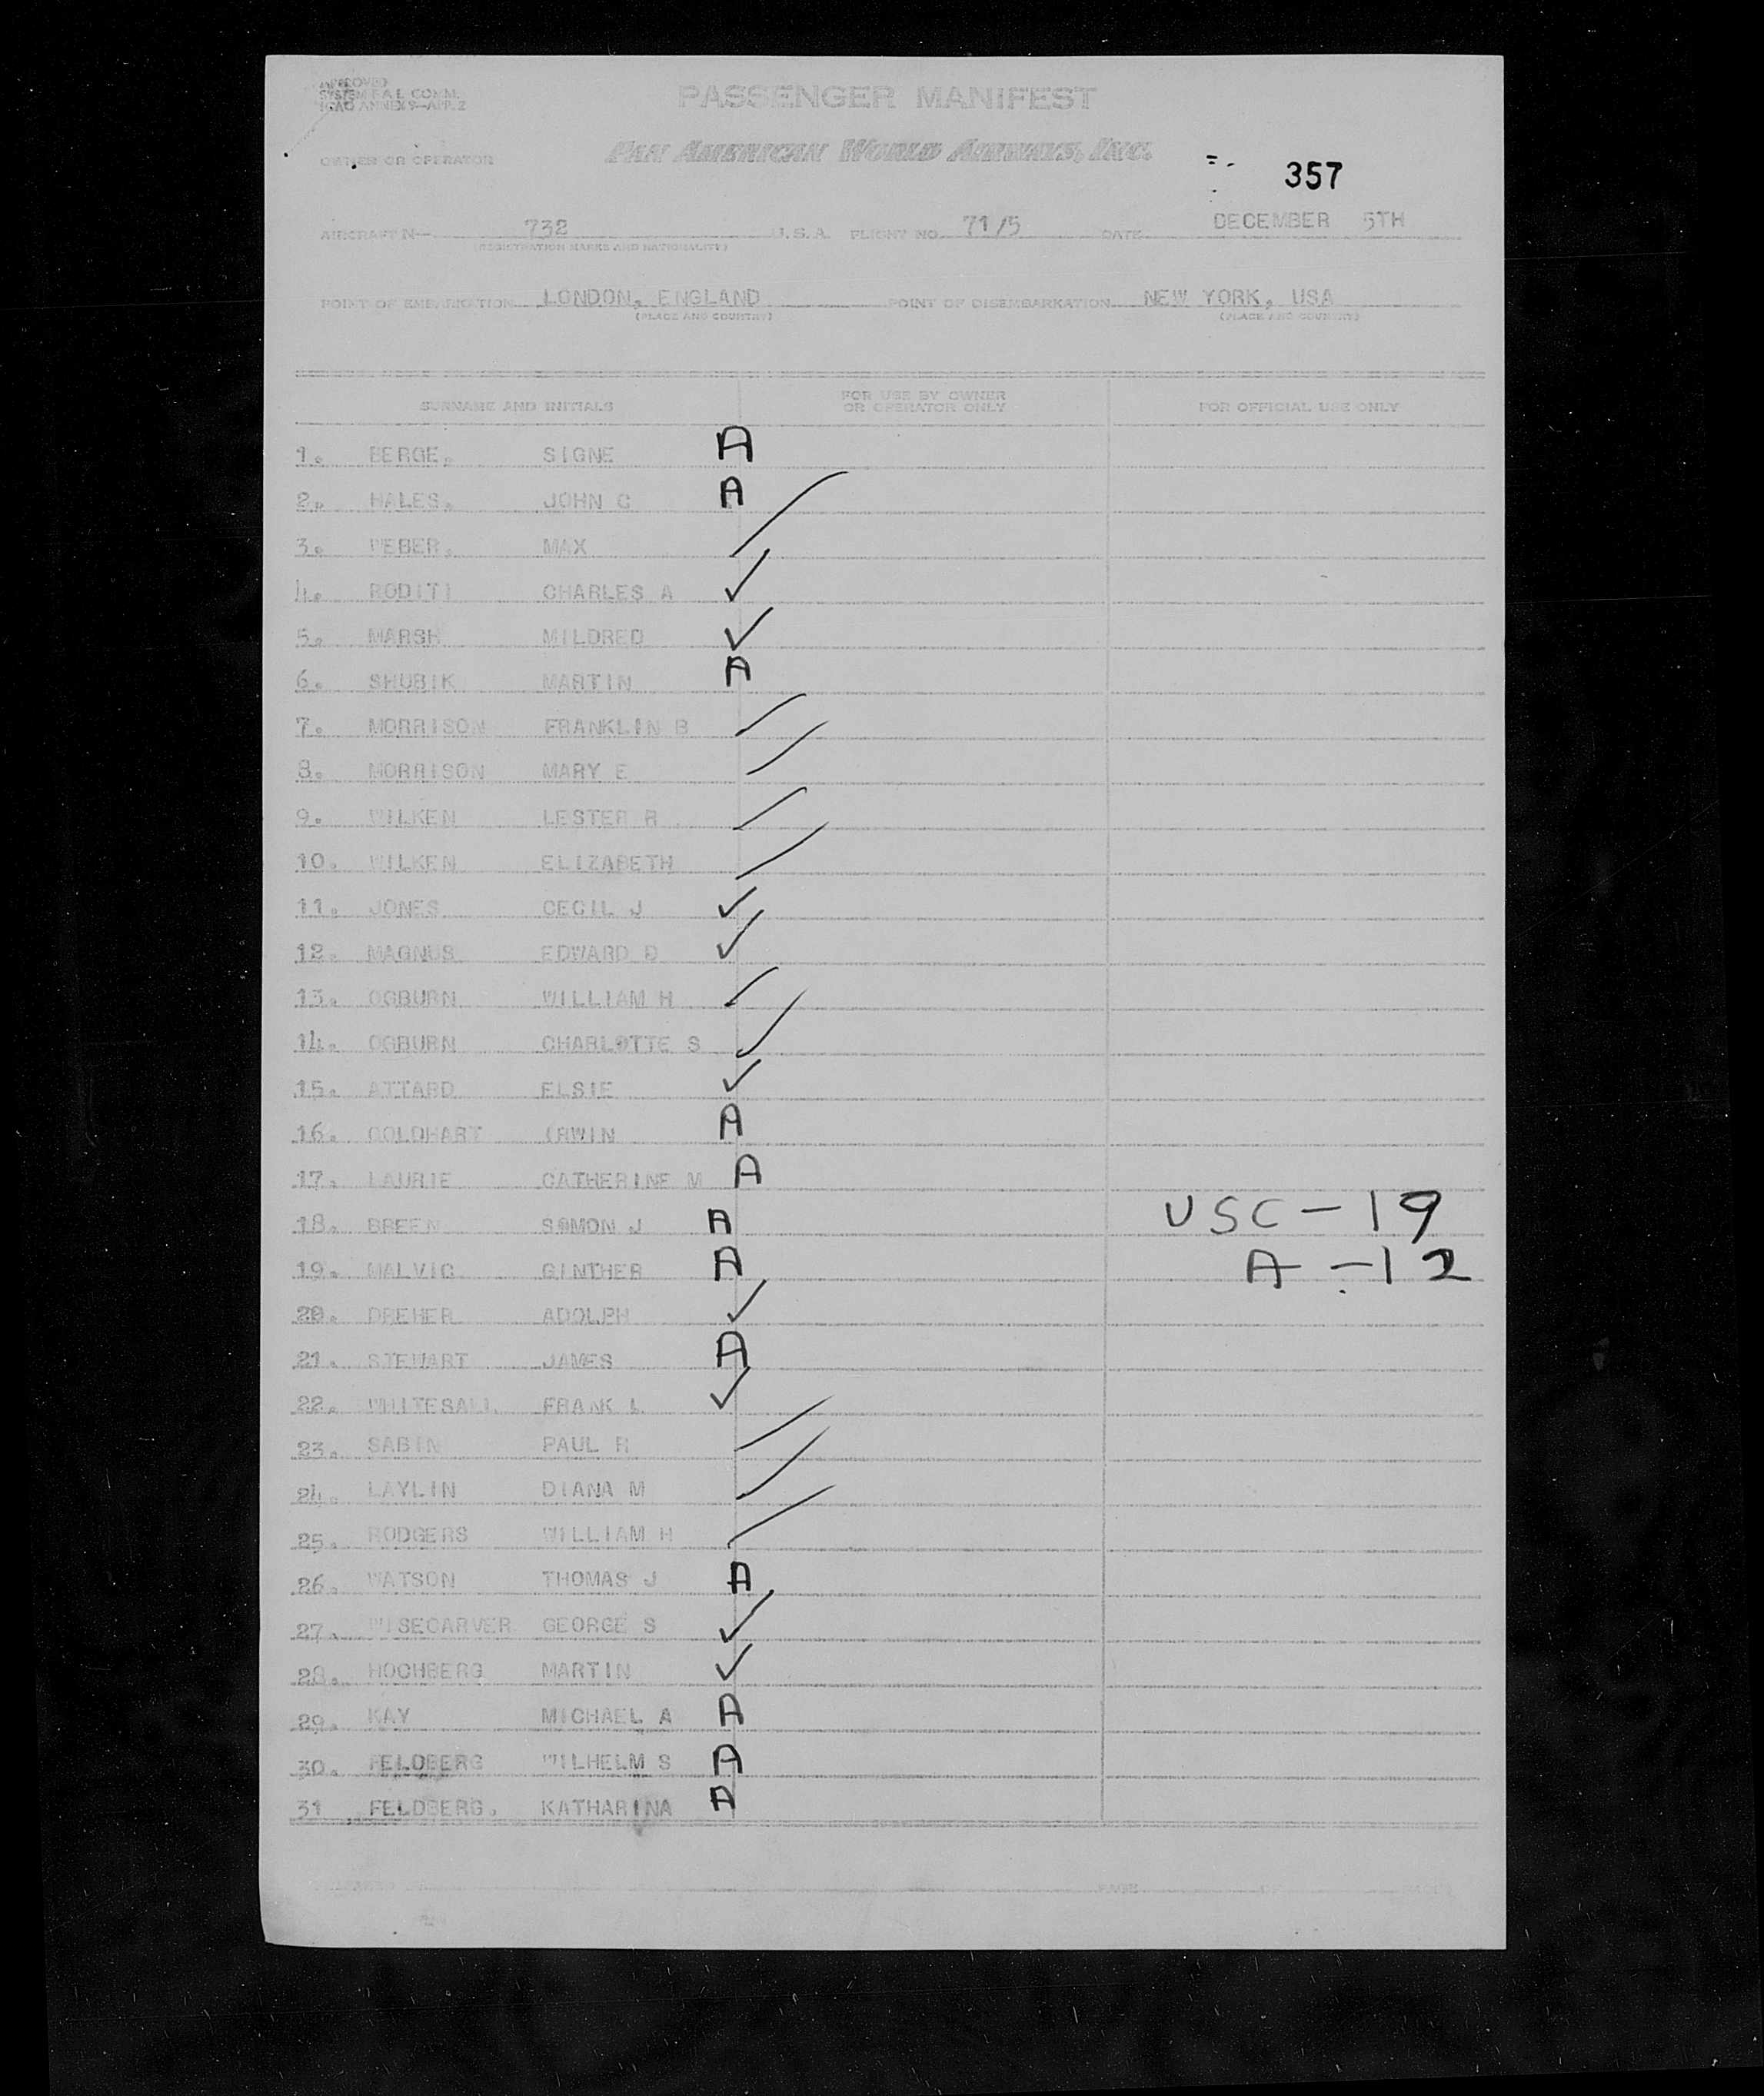 APPROVED
SYSTEM F.A.L. COMM.
ICAO ANNEX 9—APP. 2
PASSENGER MANIFEST
OWNER OR OPERATOR PAN AMERICAN WORLD AIRWAYS, INC.
357
AIRCRAFT N— 732 U. S. A. FLIGHT NO. 71/5 DATE DECEMBER 5TH
(REGISTRATION MARKS AND NATIONALITY)
POINT OF EMBARKATION LONDON, ENGLAND POINT OF DISEMBARKATION NEW YORK, USA
(PLACE AND COUNTRY) (PLACE AND COUNTRY)
SURNAME AND INITIALS FOR USE BY OWNER OR OPERATOR ONLY FOR OFFICIAL USE ONLY
1. BERGE. SIGNE A
2. HALES. JOHN C A
3. WEBER. MAX
4. RODITI CHARLES A ✓
5. MARSH MILDRED ✓
6. SHUBIK MARTIN A
7. MORRISON FRANKLIN B
8. MORRISON MARY E
9. WILKEN LESTER R
10. WILKEN ELIZABETH
11. JONES CECIL J ✓
12. MAGNUS EDWARD D ✓
13. OGBURN WILLIAM H ✓
14. OGBURN CHARLOTTE S ✓
15. ATTARD ELSIE ✓
16. GOLDHART IRWIN A
17. LAURIE CATHERINE M A
18. BREEN SOMON J A USC-19
19. MALVIG GINTHER A A-12
20. DREHER ADOLPH ✓
21. STEWART JAMES A
22. WHITESALL FRANK L ✓
23. SABIN PAUL R
24. LAYLIN DIANA M
25. RODGERS WILLIAM H
26. WATSON THOMAS J A
27. WISECARVER GEORGE S ✓
28. HOCHBERG MARTIN ✓
29. KAY MICHAEL A A
30. FELDBERG WILHELM S A
31 FELDBERG. KATHARINA A
PAGE OF